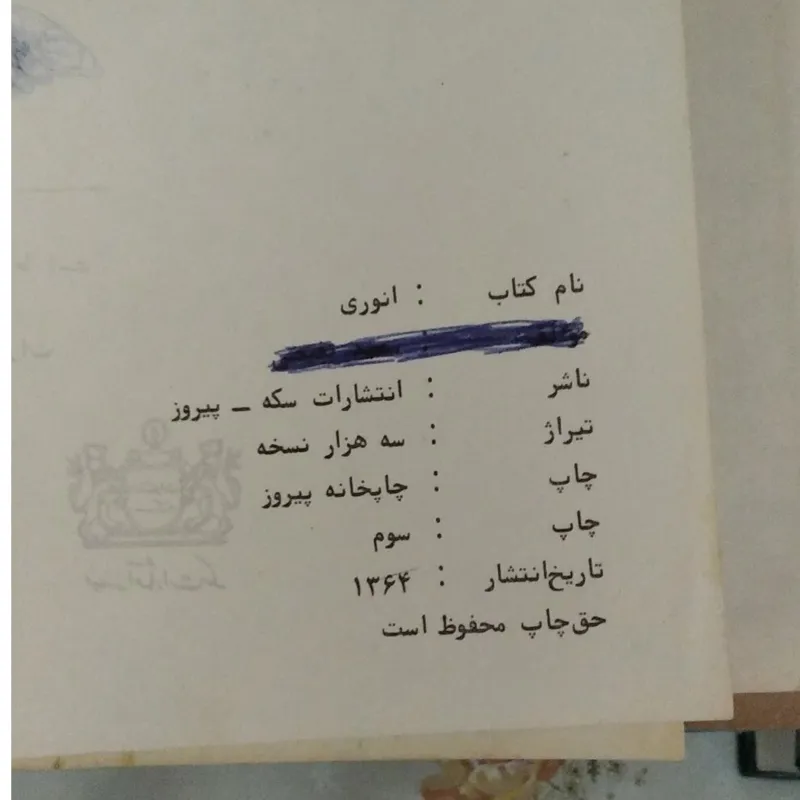 نام کتاب : انوری
ناشر : انتشارات سکه ـ پیروز
تیراژ : سه هزار نسخه
چاپ : چاپخانه پیروز
چاپ : سوم
تاریخ‌انتشار : ۱۳۶۴
حق‌چاپ محفوظ است